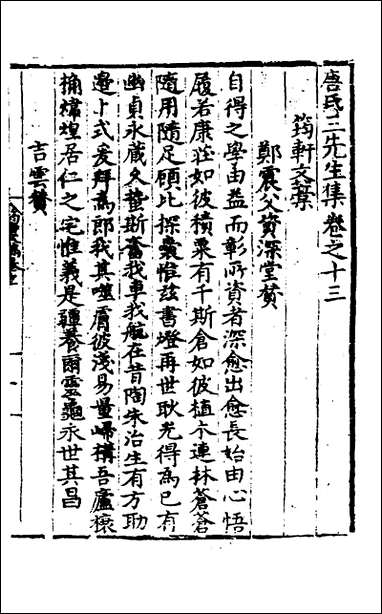 唐氏三先生集卷之十三
筠軒文藁
鄭震父資深堂贊
自得之學由益而彰所資者深愈出愈長始由心悟
履若康莊如彼積粟有千斯倉如彼植木連林蒼蒼
隨用隨足顧比探囊惟茲書燈再世耿光得爲已有
幽貞永藏久蟄斯奮我車我航在昔陶朱治生有方助
邊卜式爰拜爲郎我其嗤膚彼淺易量歸構吾廬榱
桷煒煌居仁之宅惟義是疆養爾靈龜永世其昌
吉雲贊